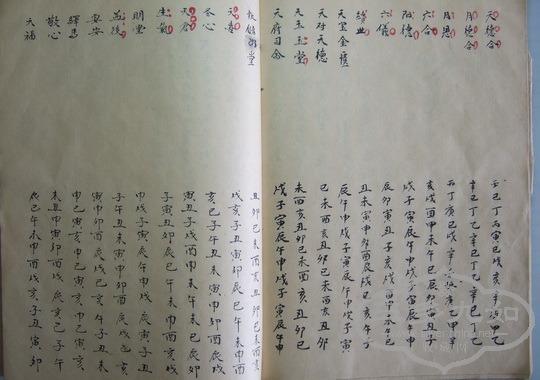 天德合 壬巳丁丙寅己戌亥辛庚申乙
月德合 辛己丁乙辛己丁乙辛己丁乙
月恩 丙丁庚己戊辛壬癸庚乙甲辛
六合 亥戌酉申未午巳辰卯寅丑子
阳德 戌子寅辰午申戌子寅辰午申
六儀 辰卯寅丑子亥戌酉申未午巳
續世 丑未寅申卯酉辰戌巳亥午子
天宝金匱 辰午申戌子寅辰午申戌子寅
天对天德 巳未酉亥丑卯巳未酉亥丑卯
天玉玉堂 未酉亥丑卯巳未酉亥丑卯巳
天府司命 戌子寅辰午申戌子寅辰午申
明堂 丑卯巳未酉亥丑卯巳未酉亥
戌亥子丑寅卯辰巳午未申酉
圣心 亥巳子午丑未寅申卯酉辰戌
天倉 寅丑子亥戌酉申未午巳辰卯
生氣 子丑寅卯辰巳午未申酉戌亥
明星 申戌子寅辰午申戌子寅辰午
益後 子午丑未寅申卯酉辰戌巳亥
要安 寅申卯酉辰戌巳亥午子未丑
驛馬 申巳寅亥申巳寅亥申巳寅亥
敬心 未丑申寅酉卯戌辰亥巳子午
天福 辰巳午未申酉戌亥子丑寅卯